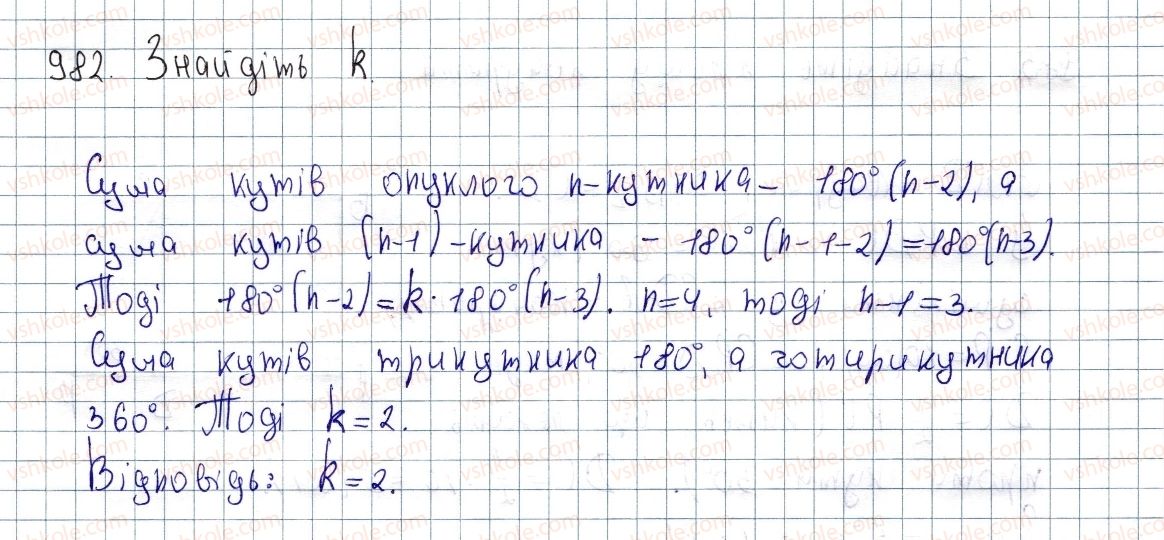 982. Знайдіть k.
Сума кутів опуклого n-кутника – 180°(n-2), а
сума кутів (n-1)-кутника – 180°(n-1-2)=180°(n-3).
Тоді 180°(n-2)=k·180°(n-3). n=4, тоді n-1=3.
Сума кутів трикутника 180°, а чотирикутника
360°. Тоді k=2.
Відповідь: k=2.